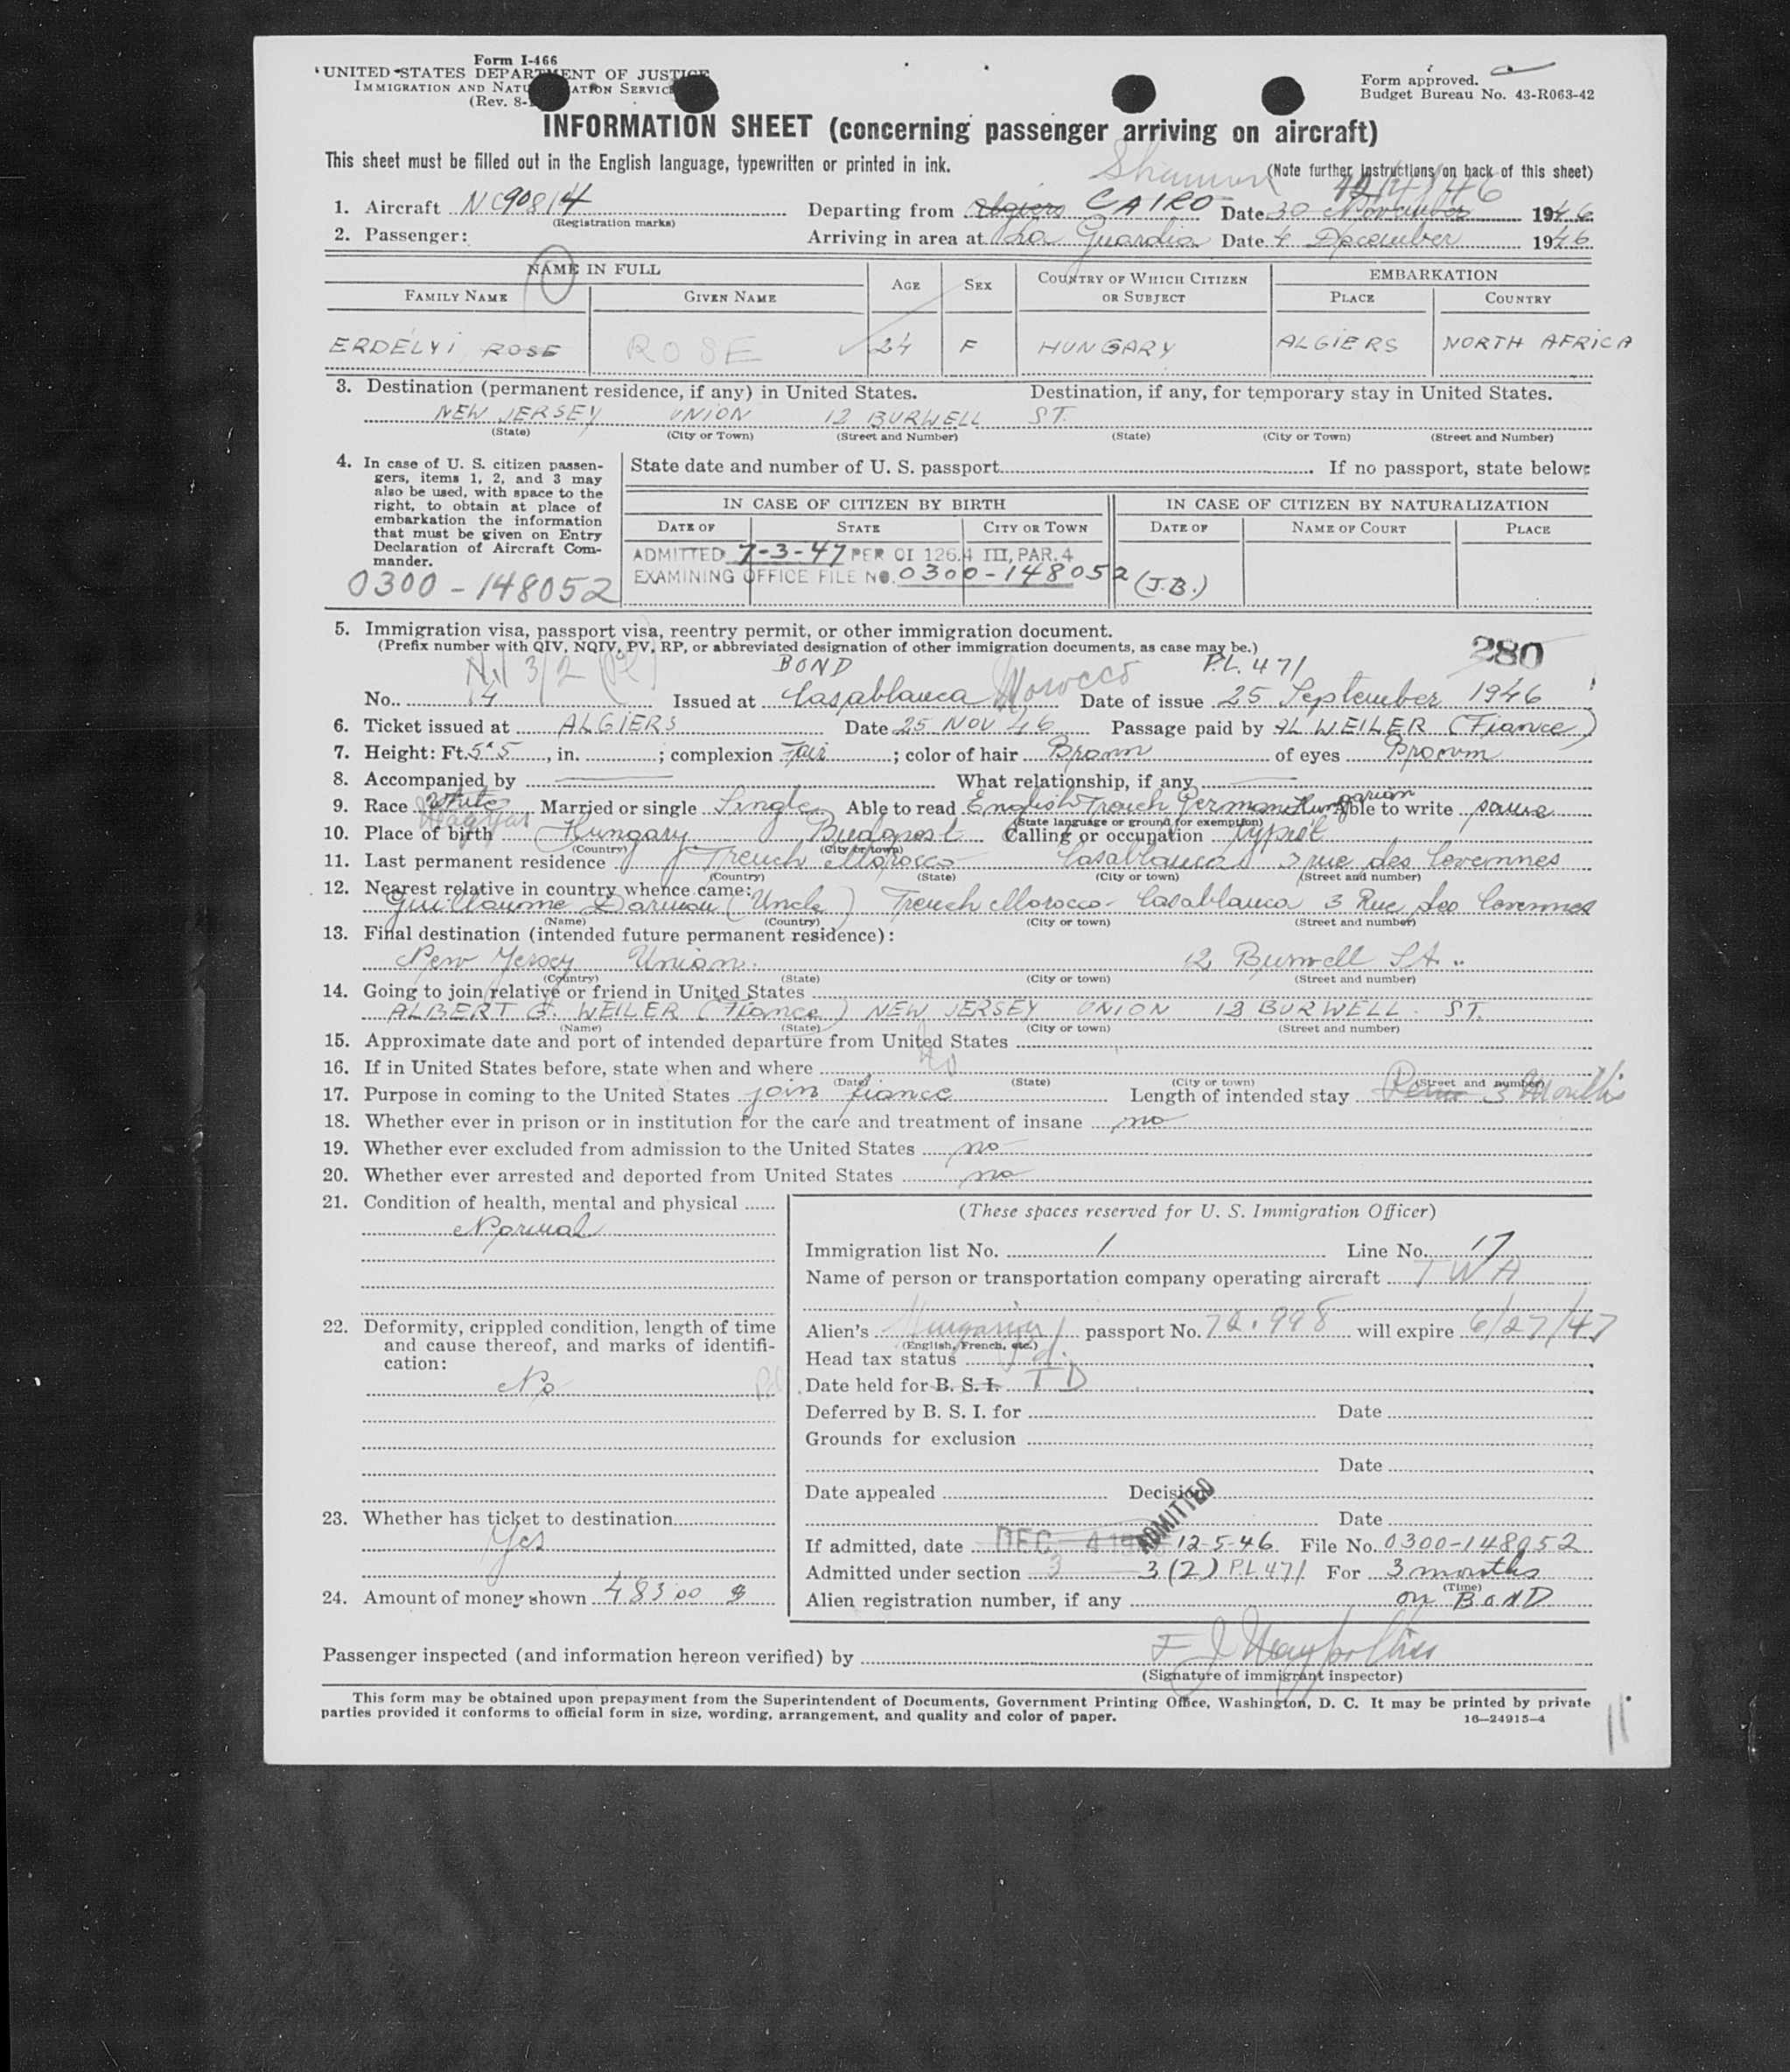 Form I-466
UNITED STATES DEPARTMENT OF JUSTICE
IMMIGRATION AND NATU ATION SERVIC
(Rev. 8-
Form approved.
Budget Bureau No. 43-R063-42
INFORMATION SHEET (concerning passenger arriving on aircraft)
This sheet must be filled out in the English language, typewritten or printed in ink.
(Note further instructions on back of this sheet)
Shannon 12/4/46
1. Aircraft NC90814 Departing from Algiers CAIRO Date 30 November 1946
(Registration marks)
2. Passenger: Arriving in area at La Guardia Date 4 December 1946
NAME IN FULL AGE SEX COUNTRY OF WHICH CITIZEN OR SUBJECT EMBARKATION
FAMILY NAME GIVEN NAME PLACE COUNTRY
ERDÉLYI ROSE ROSE 24 F HUNGARY ALGIERS NORTH AFRICA
3. Destination (permanent residence, if any) in United States. Destination, if any, for temporary stay in United States.
NEW JERSEY UNION 12 BURWELL ST.
(State) (City or Town) (Street and Number) (State) (City or Town) (Street and Number)
4. In case of U. S. citizen passengers, items 1, 2, and 3 may also be used, with space to the right, to obtain at place of embarkation the information that must be given on Entry Declaration of Aircraft Commander.
0300-148052
State date and number of U. S. passport If no passport, state below:
IN CASE OF CITIZEN BY BIRTH IN CASE OF CITIZEN BY NATURALIZATION
DATE OF STATE CITY OR TOWN DATE OF NAME OF COURT PLACE
ADMITTED 7-3-47 PER OI 126.4 III, PAR. 4
EXAMINING OFFICE FILE NO. 0300-148052 (J.B.)
5. Immigration visa, passport visa, reentry permit, or other immigration document.
(Prefix number with QIV, NQIV, PV, RP, or abbreviated designation of other immigration documents, as case may be.)
280
3/2 BOND P.L. 471
No. 14 Issued at Casablanca Morocco Date of issue 25 September 1946
6. Ticket issued at ALGIERS Date 25 NOV 46 Passage paid by AL WEILER (Fiance)
7. Height: Ft. 5'5 , in. ; complexion Fair ; color of hair Brown of eyes Broown
8. Accompanied by What relationship, if any
9. Race White Magyar Married or single Single Able to read English French German Hungarian Able to write same
(State language or ground for exemption)
10. Place of birth Hungary Budapest Calling or occupation typist
(Country) (City or town)
11. Last permanent residence French Morocco Casablanca 3 rue des Cevennes
(Country) (State) (City or town) (Street and number)
12. Nearest relative in country whence came:
Guillaume Darmon (Uncle) French Morocco - Casablanca 3 Rue des Cevennes
(Name) (Country) (City or town) (Street and number)
13. Final destination (intended future permanent residence):
New Jersey Union. 12 Burwell St.
(Country) (State) (City or town) (Street and number)
14. Going to join relative or friend in United States
ALBERT G. WEILER (Fiance) NEW JERSEY UNION 12 BURWELL ST.
(Name) (State) (City or town) (Street and number)
15. Approximate date and port of intended departure from United States
16. If in United States before, state when and where No
(Date) (State) (City or town) (Street and number)
17. Purpose in coming to the United States join fiance Length of intended stay Perm 3 Months
18. Whether ever in prison or in institution for the care and treatment of insane no
19. Whether ever excluded from admission to the United States no
20. Whether ever arrested and deported from United States no
21. Condition of health, mental and physical
Normal
22. Deformity, crippled condition, length of time and cause thereof, and marks of identification:
No
23. Whether has ticket to destination
Yes
24. Amount of money shown 483.00 $
(These spaces reserved for U. S. Immigration Officer)
Immigration list No. 1 Line No. 17
Name of person or transportation company operating aircraft TWA
Alien's Hungarian passport No. 72.998 will expire 6/27/47
(English, French, etc.)
Head tax status
Date held for B. S. I. TD
Deferred by B. S. I. for Date
Grounds for exclusion
Date
Date appealed Decision
Date
ADMITTED
If admitted, date DEC 4 12-5-46 File No. 0300-148052
Admitted under section 3 3(2) P.L 471 For 3 months
(Time)
Alien registration number, if any on BOND
Passenger inspected (and information hereon verified) by
(Signature of immigrant inspector)
This form may be obtained upon prepayment from the Superintendent of Documents, Government Printing Office, Washington, D. C. It may be printed by private
parties provided it conforms to official form in size, wording, arrangement, and quality and color of paper.
16—24915-4